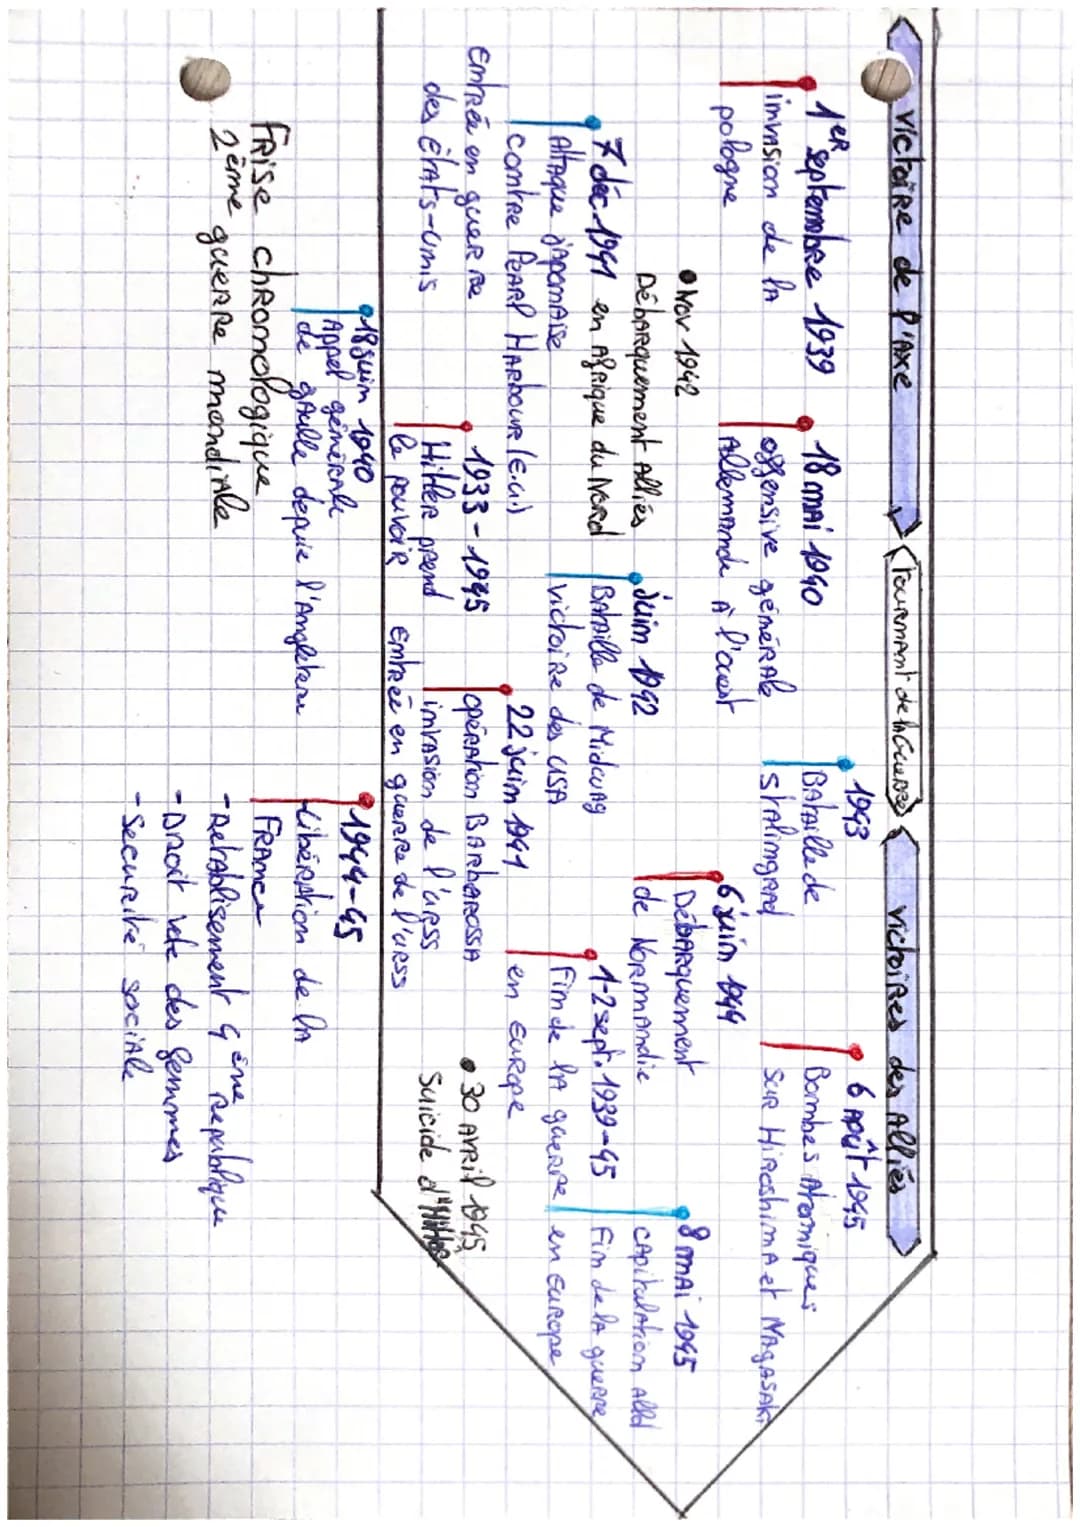 victoire de l'Axe
Tournant de la Guerre
victoires des Alliés
1er septembre 1939
invasion de la
pologne
18 mai 1940
offensive générale
Allemande à l'ouest
1943
Bataille de
Stalingrad
6 Août 1945
Bombes Atomiques
sur Hiroshima et Nagasaki
Nov 1942
Débarquement Alliés
en Afrique du Nord
7 déc 1941
Attaque japonaise
contre Pearl Harbour (E.U)
Entrée en guerre
des États-Unis
juin 1942
Bataille de Midway
victoire des USA
6 juin 1944
Débarquement
de Normandie
8 mai 1945
capitulation alld
Fin de la guerre
en Europe
1933-1945
Hitler prend
le pouvoir
22 juin 1941
opération Barbarossa
invasion de l'urss
entrée en guerre de l'urss
1-2 sept. 1939-45
Fin de la guerre
en Europe
30 Avril 1945
Suicide d'Hitler
18 juin 1940
Appel générale
de gaulle depuis l'Angleterre
1944-45
-Libération de la
France
-Retablisement 4ème republique
-Droit vote des femmes
-Securité sociale
Frise chronologique
2ème guerre mondiale